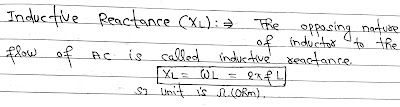 Inductive Reactance (XL):⇒ The opposing nature
of inductor to the
flow of AC is called inductive reactance.
XL = ωL = 2πfL
SI unit is Ω (ohm).